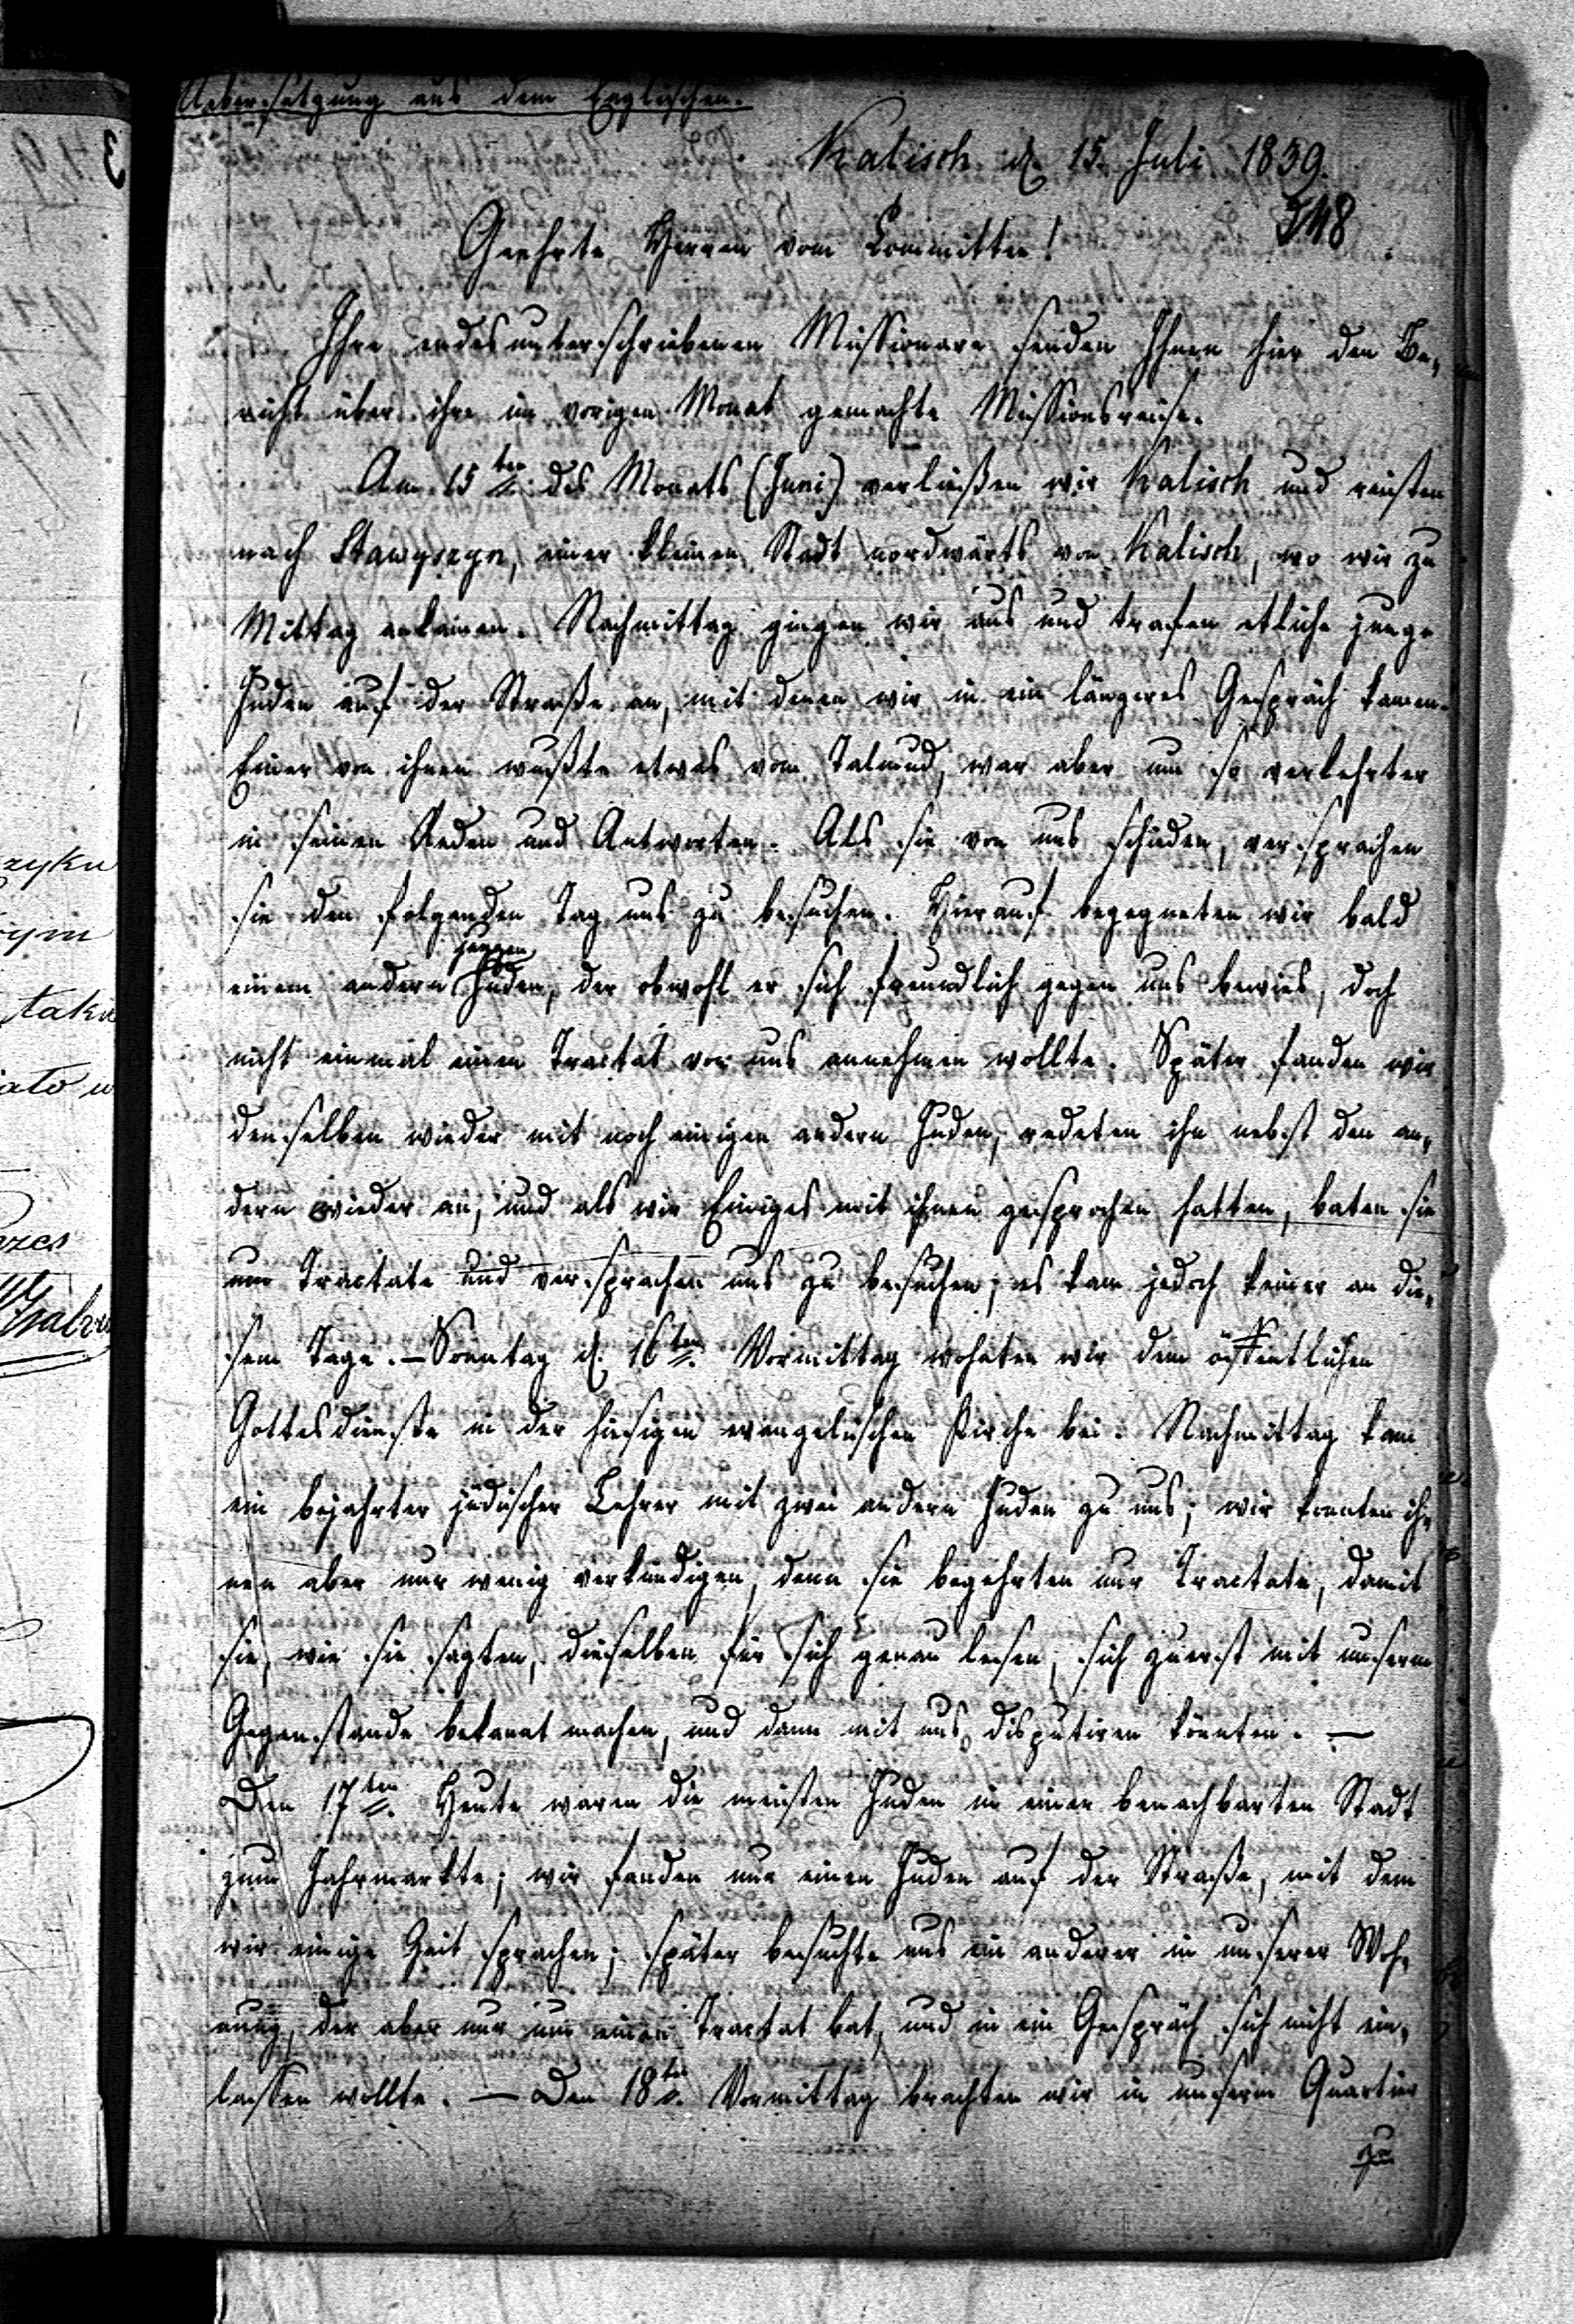 Uebersetzung aus dem Englischen.
Kalisch d. 15. Juli 1839.
348
Geehrte Herren vom Committee!
Ihre endesunterschriebenen Missionare senden Ihnen hier den Be-
richt über ihre im vorigen Monat gemachte Missionsreise.
Am 15ten des Monats (Juni) verließen wir Kalisch und reisten
nach Stawyszyn, einer kleinen Stadt nordwärts von Kalisch, wo wir zu
Mittag ankamen. Nachmittag gingen wir aus und trafen etliche junge
Juden auf der Straße an, mit denen wir in ein längeres Gespräch kamen.
Einer von ihnen wußte etwas vom Talmud, war aber um so verkehrter
in seinen Reden und Antworten. Als sie von uns schieden, versprachen
sie den folgenden Tag uns zu besuchen. Hierauf begegneten wir bald
jungen
einem andern Juden, der obwohl er sich freundlich gegen uns bewies, doch
nicht einmal einen Tractat von uns annehmen wollte. Später fanden wir
denselben wieder mit noch einigen andern Juden, redeten ihn nebst den an-
dern wieder an, und als wir Einiges mit ihnen gesprochen hatten, baten sie
um Tractate und versprachen uns zu besuchen; es kam jedoch keiner an die-
sem Tage. – Sonntag d. 16ten Vormittag wohnten wir dem öffentlichen
Gottesdienste in der hiesigen evangelischen Kirche bei. Nachmittag kam
ein bejahrter jüdischer Lehrer mit zwei andern Juden zu uns; wir konnten ih-
nen aber nur wenig verkündigen, denn sie begehrten nur Tractate, damit
sie, wie sie sagten, dieselben für sich genau lesen, sich zuerst mit unserm
Gegenstande bekannt machen, und dann mit uns disputiren könnten. –
Den 17ten Heute waren die meisten Juden in einer benachbarten Stadt
zum Jahrmarkte; wir fanden nur einen Juden auf der Straße, mit dem
wir einige Zeit sprachen; später besuchte uns ein anderer in unserer Woh-
nung, der aber nur um einen Tractat bat, und in ein Gespräch sich nicht ein-
lassen wollte. – Den 18ten Vormittag brachten wir in unserm Quartier
zu